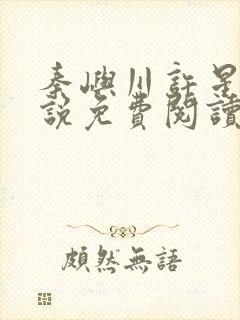 秦嶼川許星
說免費閱讀
頗然無語